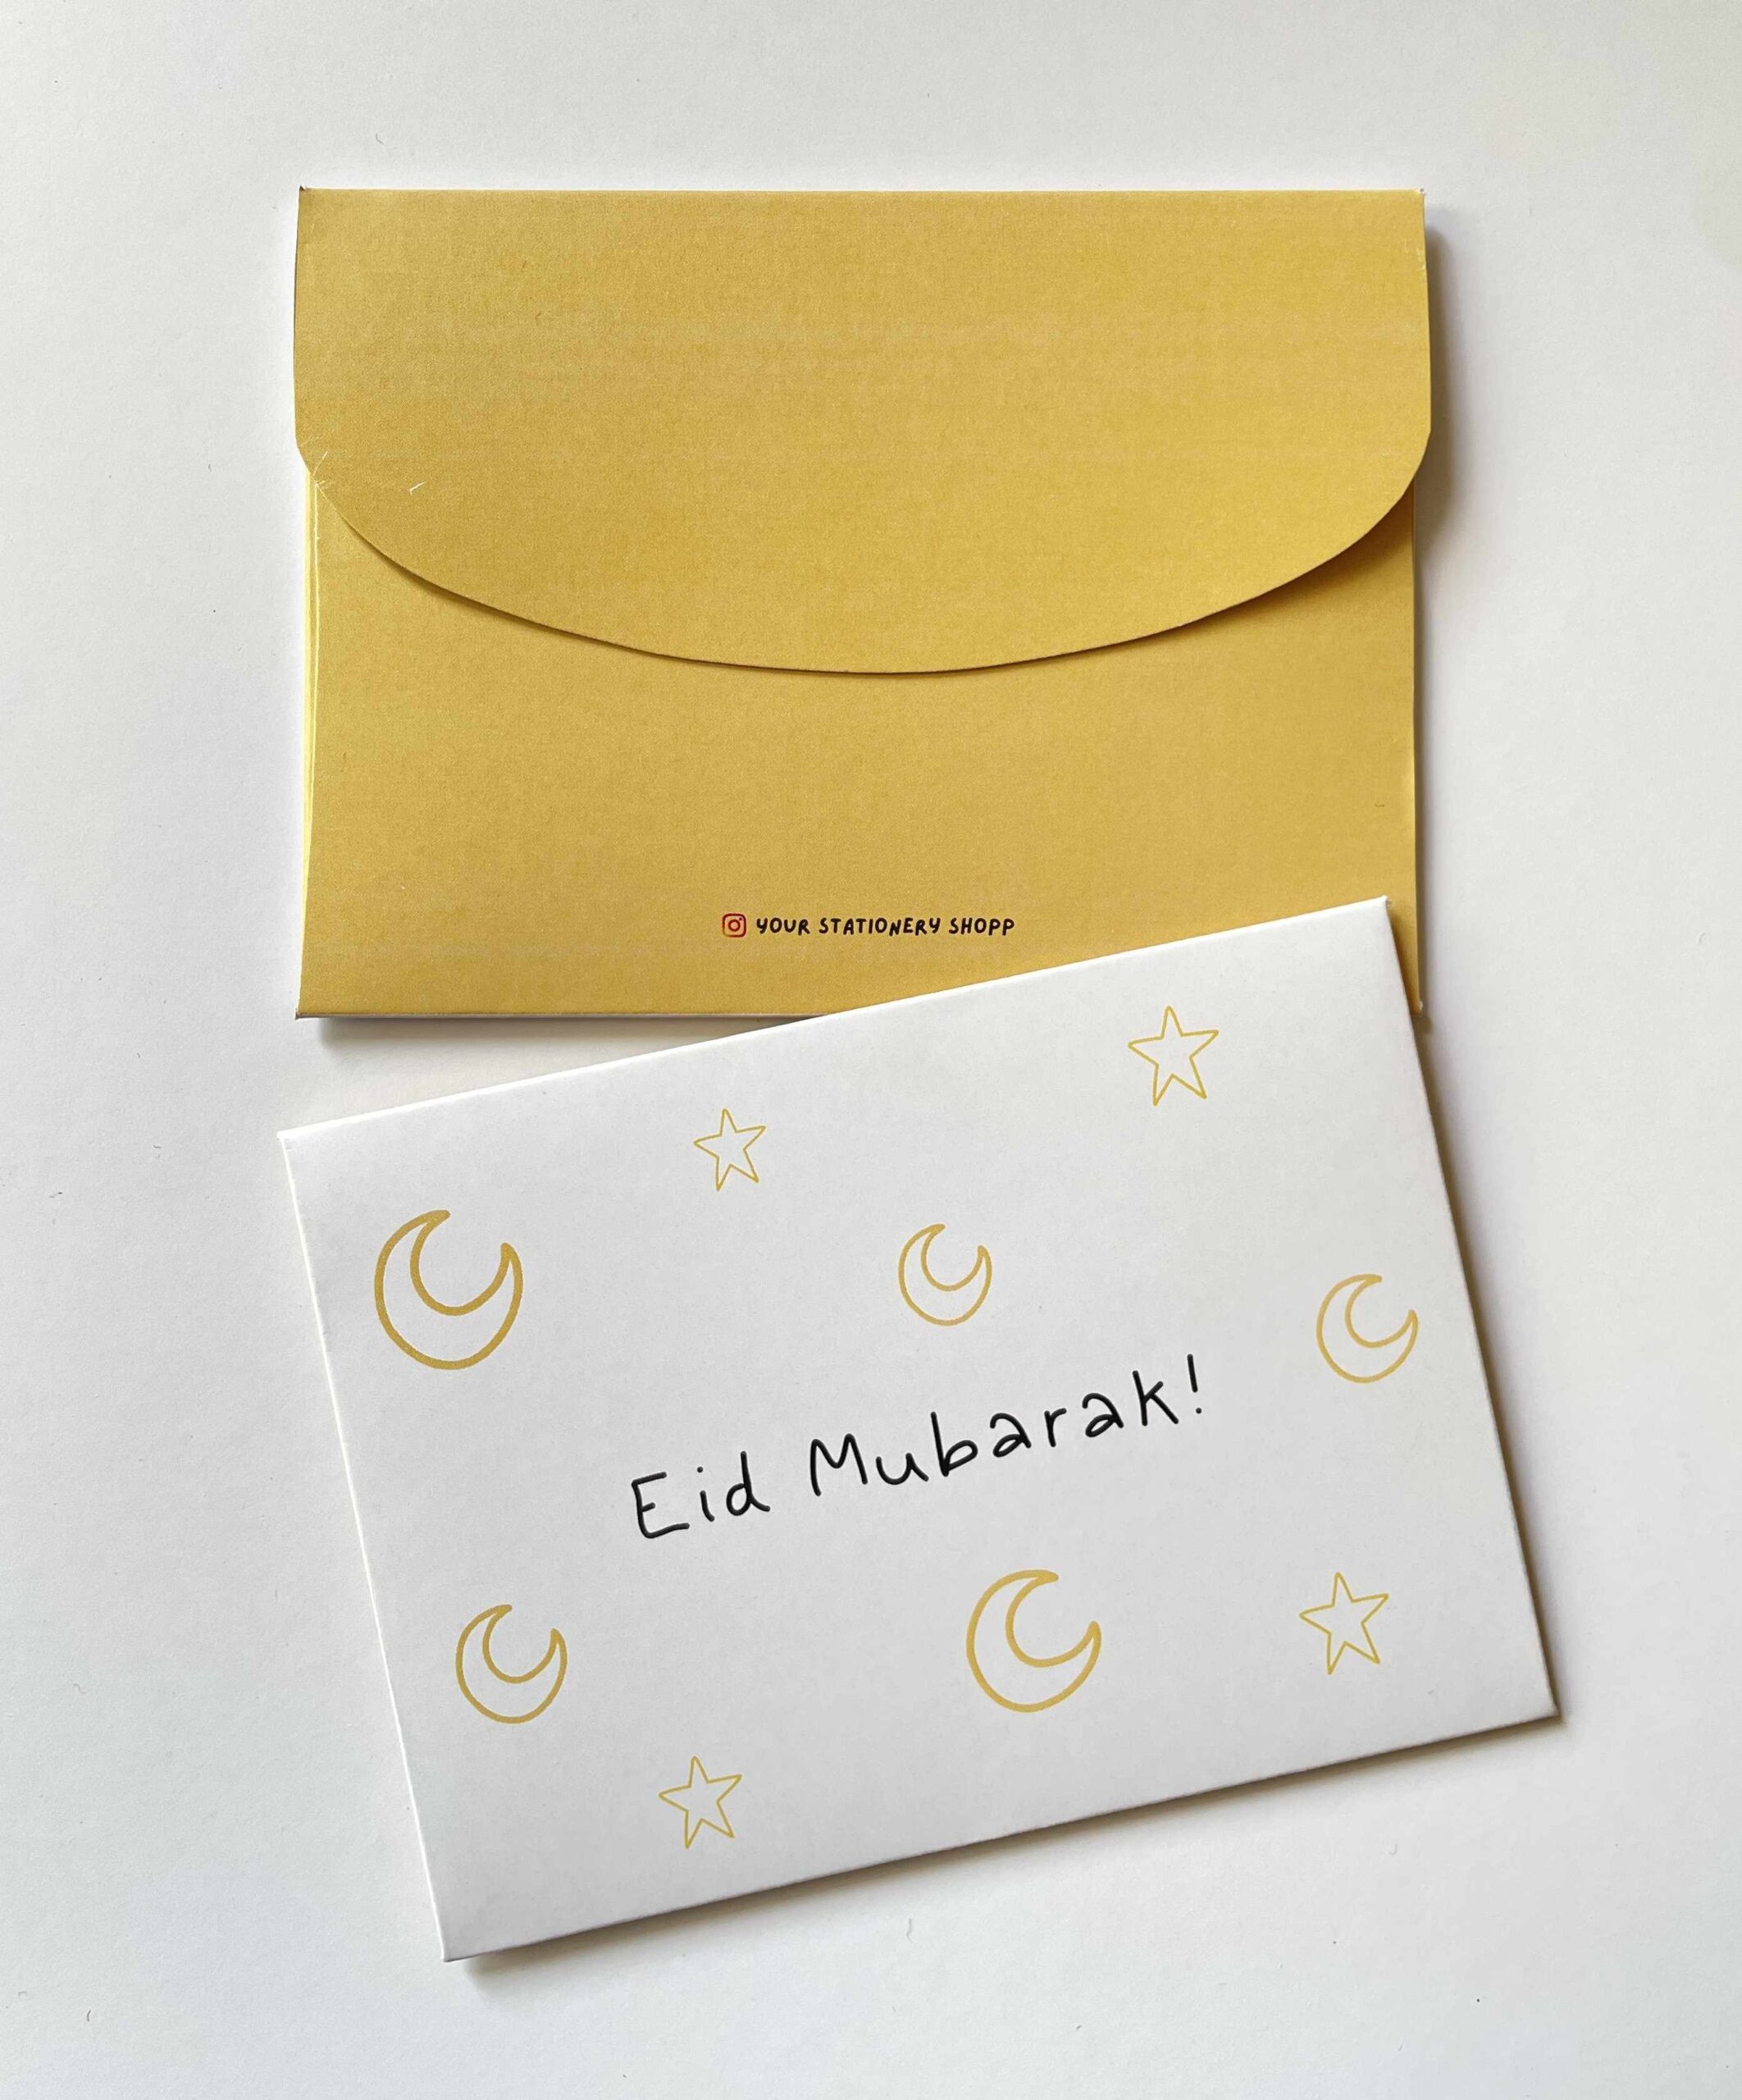 YOUR STATIONERY SHOPP
Eid Mubarak!